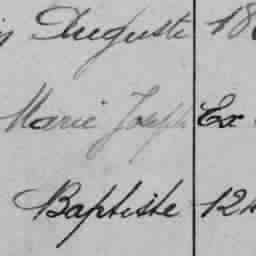 Auguste 18
Marie Joseph Ex
Baptiste 12